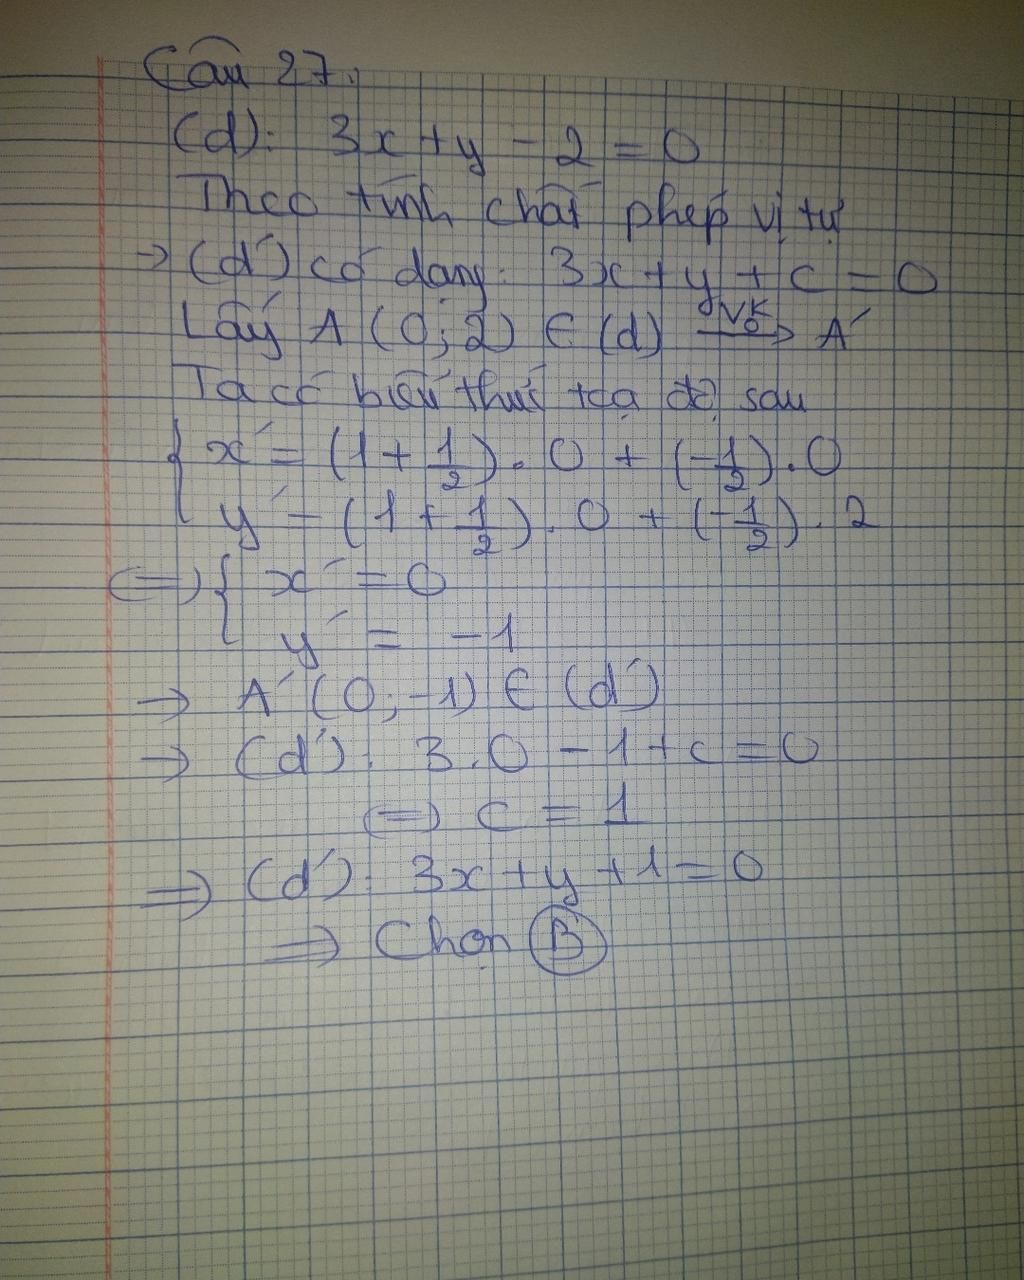 Câu 27.
(d): 3x + y - 2 = 0
Theo tính chất phép vị tự
→ (d') có dạng: 3x + y + c = 0
Lấy A (0; 2) ∈ (d) V_O^K → A'
Ta có biểu thức tọa độ sau
{ x' = (1 + 1/2) . 0 + (-1/2) . 0
y' = (1 + 1/2) . 0 + (-1/2) . 2
(=) { x' = 0
y' = -1
→ A' (0; -1) ∈ (d')
→ (d'): 3.0 - 1 + c = 0
(=) c = 1
⇒ (d'): 3x + y + 1 = 0
⇒ Chọn B